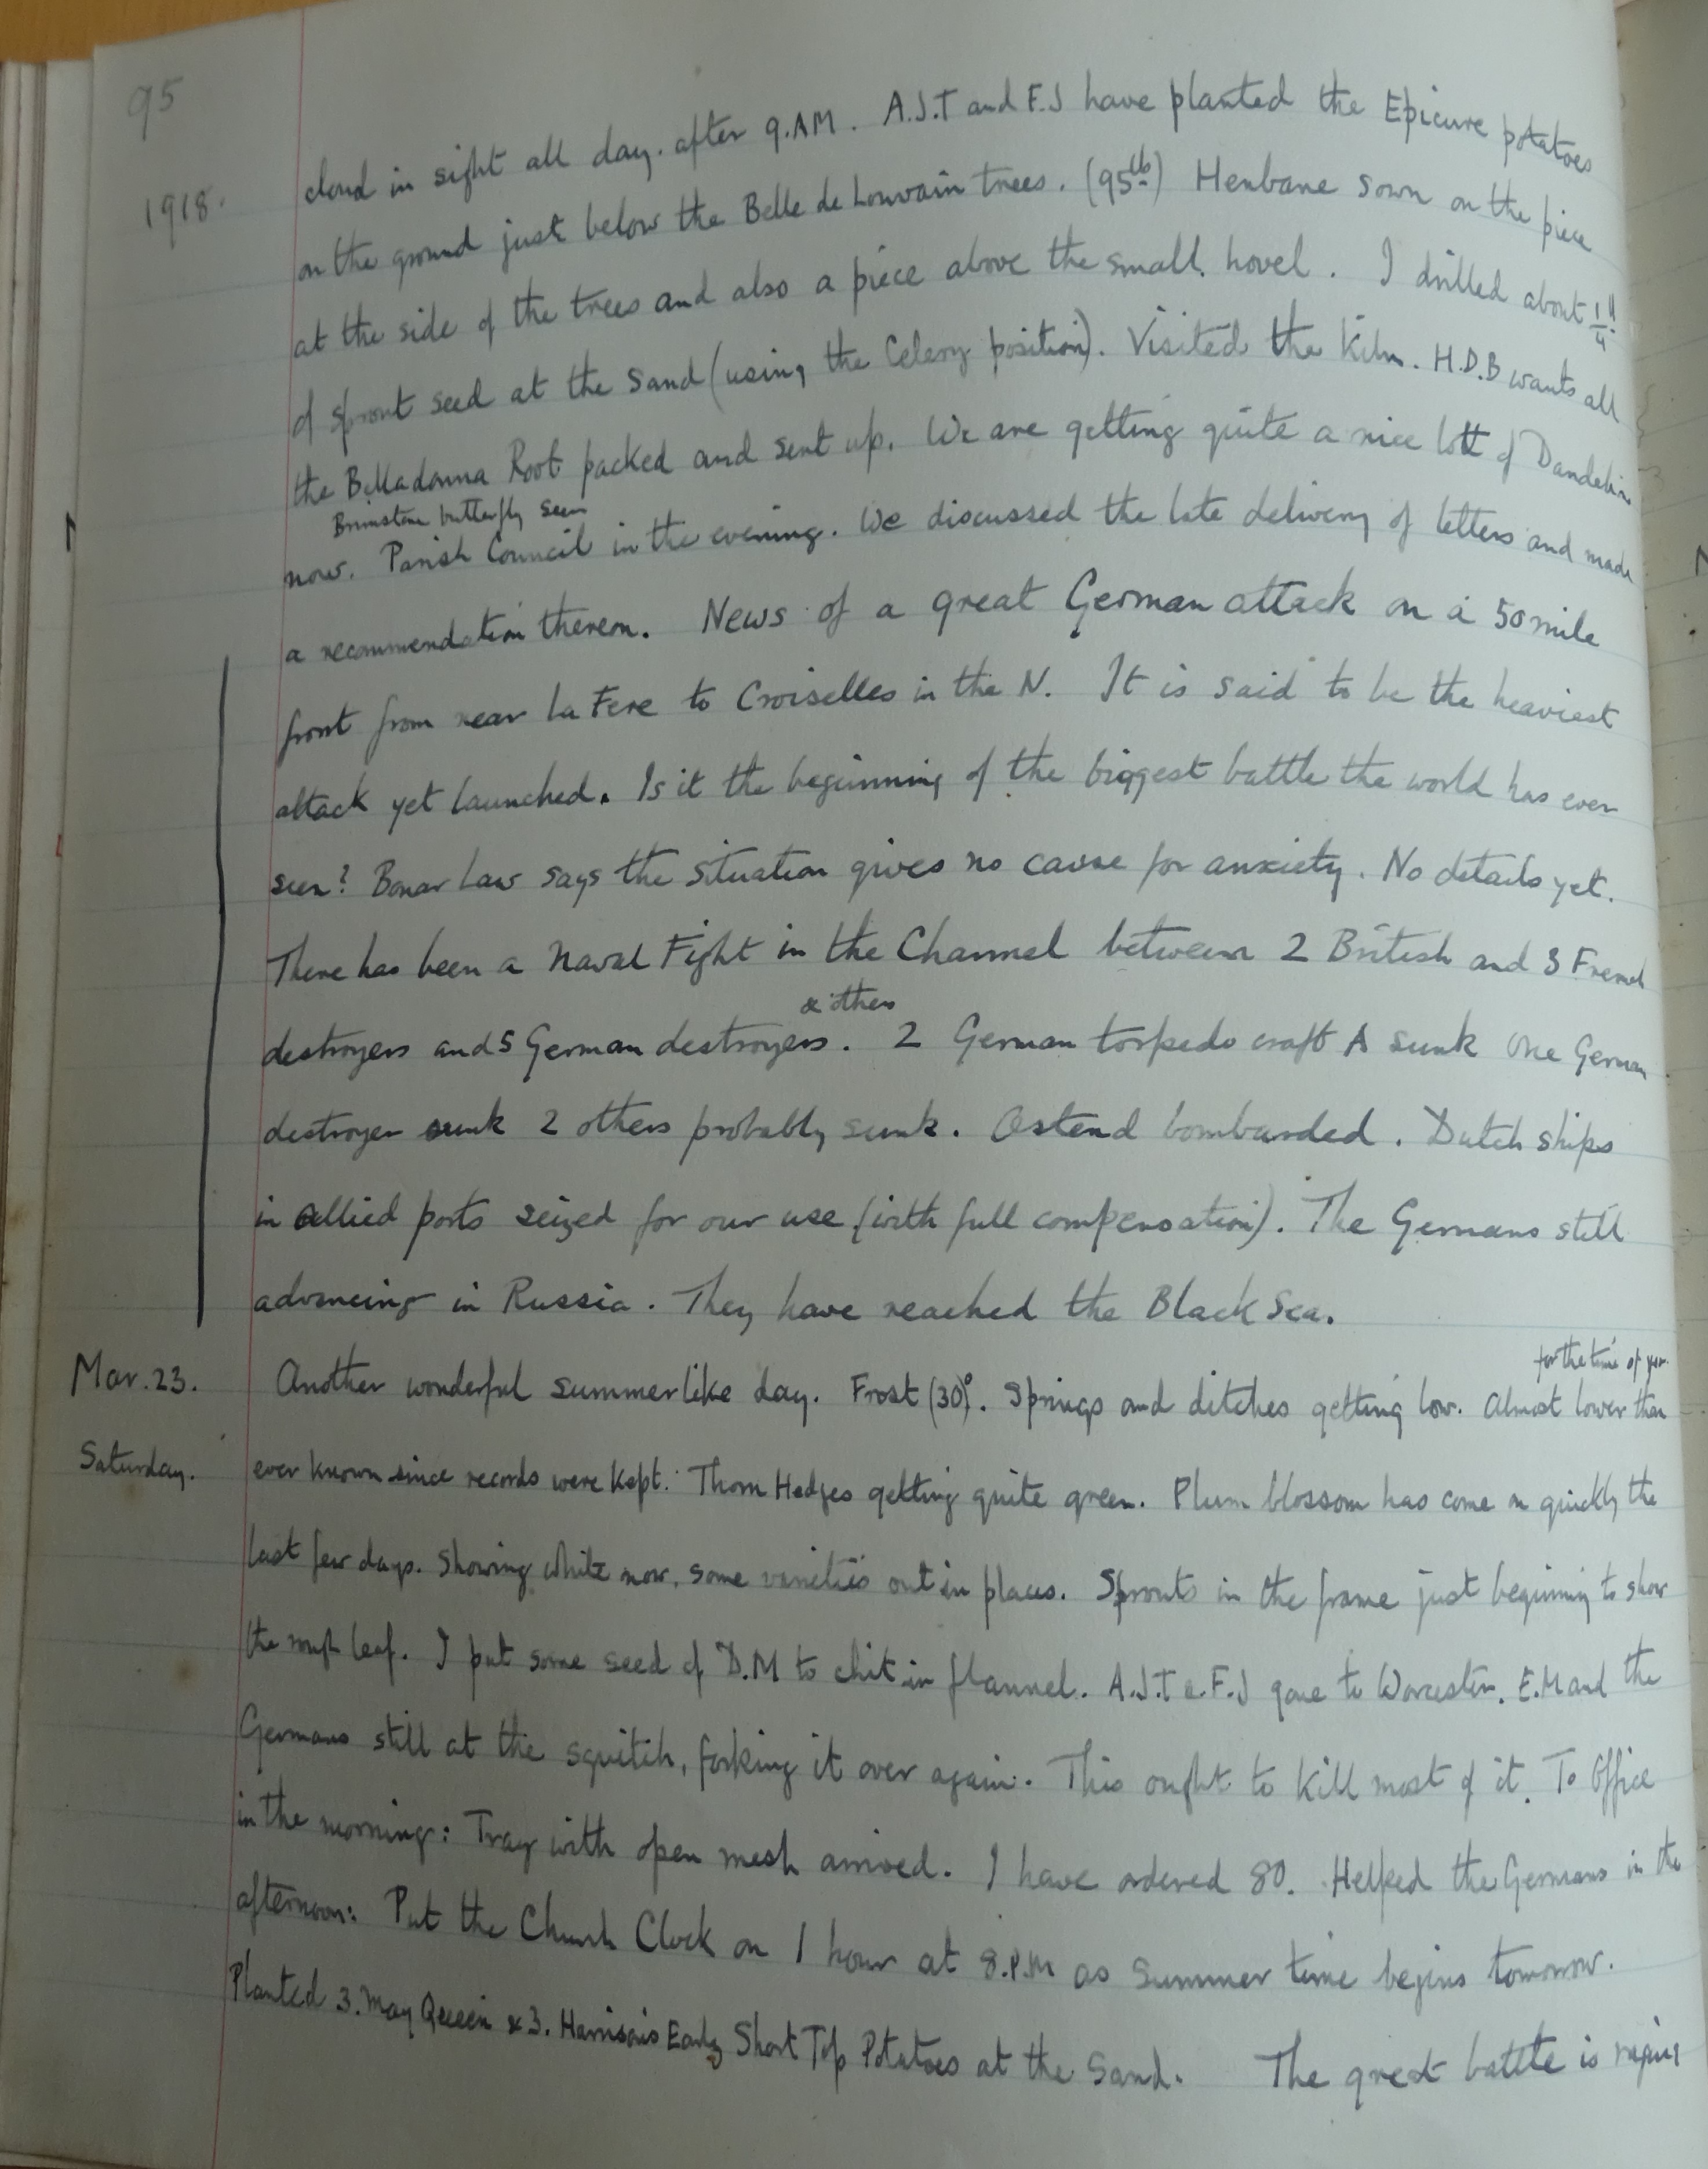 95
1918.
cloud in sight all day. after 9.AM. A.J.T and F.J have planted the Epicure potatoes
on the ground just below the Belle de Louvain trees. (95lb) Henbane sown on the piece
at the side of the trees and also a piece above the small hovel. I drilled about 1/4
of sprout seed at the Sand (using the Celery position). Visited the Kiln. H.D.B wants all
the Belladonna Root packed and sent up. We are getting quite a nice lott of Dandelion
Brimstone butterfly seen
now. Parish Council in the evening. We discussed the late delivery of letters and made
a recommendation thereon. News of a great German attack on a 50 mile
front from near La Fere to Croiselles in the N. It is said to be the heaviest
attack yet launched. Is it the beginning of the biggest battle the world has ever
seen? Bonar Law says the situation gives no cause for anxiety. No details yet.
There has been a Naval Fight in the Channel between 2 British and 3 French
& others
destroyers and 5 German destroyers. 2 German torpedo craft sunk One German
destroyer sunk 2 others probably sunk. Ostend bombarded. Dutch ships
in allied ports seized for our use (with full compensation). The Germans still
advancing in Russia. They have reached the Black Sea.
for the time of year.
Mar. 23. Another wonderful summerlike day. Frost (30)°. Springs and ditches getting low. Almost lower than
Saturday. ever known since records were kept. Thorn Hedges getting quite green. Plum blossom has come on quickly the
last few days. Showing white now, some varieties out in places. Sprouts in the frame just beginning to show
the rough leaf. I put some seed of D.M to chit in flannel. A.J.T & F.J gone to Worcester. E.M and the
Germans still at the squitch, forking it over again. This ought to kill most of it. To Office
in the morning: Tray with open mesh arrived. I have ordered 80. Helped the Germans in the
afternoon: Put the Church Clock on 1 hour at 8.P.M as Summer time begins tomorrow.
Planted 3. May Queen & 3. Harrisons Early Short Top Potatoes at the Sand. The great battle is raging